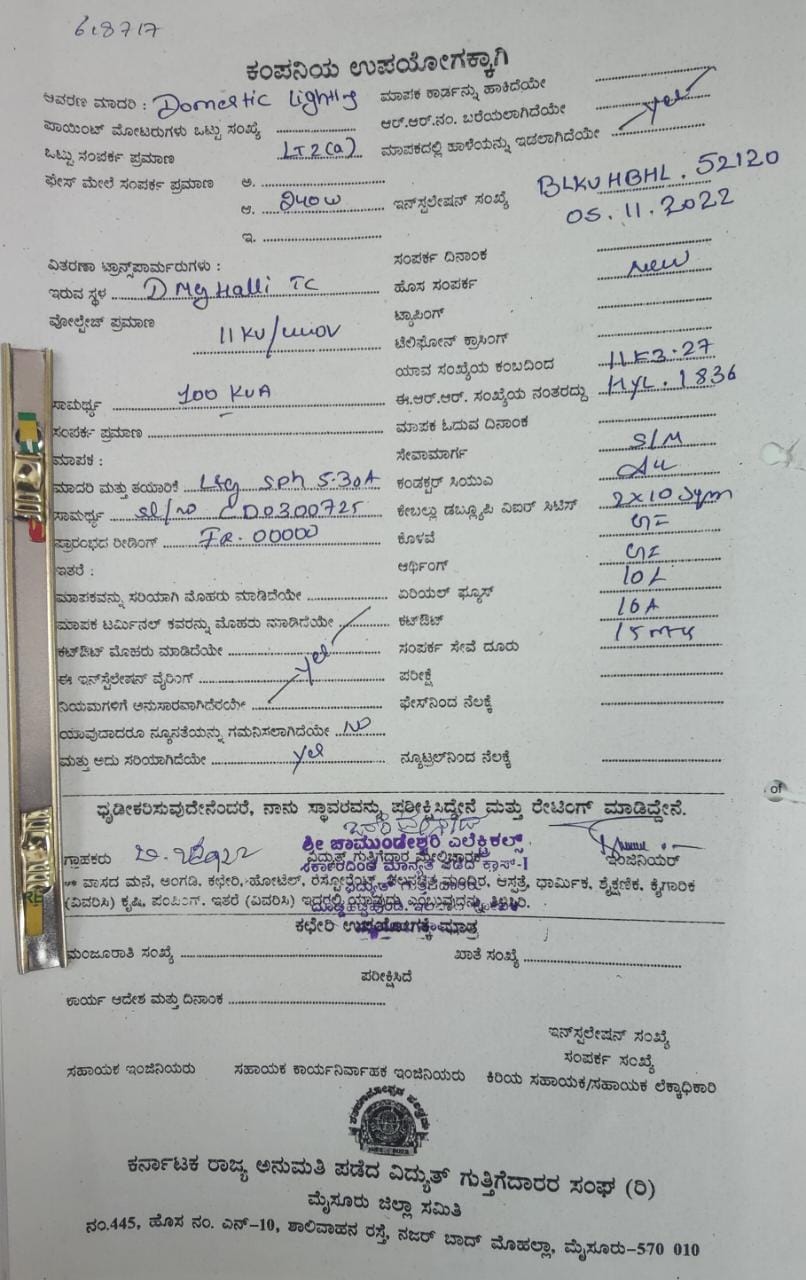 618717
ಕಂಪನಿಯ ಉಪಯೋಗಕ್ಕಾಗಿ
ಆವರಣ ಮಾದರಿ : Domestic Lighting ಮಾಪಕ ಕಾರ್ಡನ್ನು ಹಾಕಿದೆಯೇ
ಪಾಯಿಂಟ್ ಮೋಟರುಗಳು ಒಟ್ಟು ಸಂಖ್ಯೆ ಆರ್.ಆರ್.ನಂ. ಬರೆಯಲಾಗಿದೆಯೇ
ಒಟ್ಟು ಸಂಪರ್ಕ ಪ್ರಮಾಣ LT2(a) ಮಾಪಕದಲ್ಲಿ ಹಾಳೆಯನ್ನು ಇಡಲಾಗಿದೆಯೇ yes
ಫೇಸ್ ಮೇಲೆ ಸಂಪರ್ಕ ಪ್ರಮಾಣ ಅ.
ಆ. 240W ಇನ್‌ಸ್ಟಲೇಷನ್ ಸಂಖ್ಯೆ BLKUHBHL. 52120
05.11.2022
ಇ.
ವಿತರಣಾ ಟ್ರಾನ್ಸ್‌ಪಾರ್ಮರುಗಳು : ಸಂಪರ್ಕ ದಿನಾಂಕ
ಇರುವ ಸ್ಥಳ D Meg Halli TC ಹೊಸ ಸಂಪರ್ಕ New
ವೋಲ್ಟೇಜ್ ಪ್ರಮಾಣ 11 KV/ ಟ್ಯಾಪಿಂಗ್
ಟೆಲಿಫೋನ್ ಕ್ರಾಸಿಂಗ್
ಯಾವ ಸಂಖ್ಯೆಯ ಕಂಬದಿಂದ
ಸಾಮರ್ಥ್ಯ 100 KVA ಈ.ಆರ್.ಆರ್. ಸಂಖ್ಯೆಯ ನಂತರದ್ದು HYL. 1836
ಸಂಪರ್ಕ ಪ್ರಮಾಣ ಮಾಪಕ ಓದುವ ದಿನಾಂಕ
ಮಾಪಕ : ಸೇವಾಮಾರ್ಗ S/M
ಮಾದರಿ ಮತ್ತು ತಯಾರಿಕೆ L&G SPH 5-30A ಕಂಡಕ್ಟರ್ ಸಿಯುಎ
ಸಾಮರ್ಥ್ಯ Sl/no CD0300725 ಕೇಬಲ್ಲು ಡಬ್ಲ್ಯೂಪಿ ವಿಐರ್ ಸಿಟಿಸ್ 2x10 Sqm
ಪ್ರಾರಂಭದ ರೀಡಿಂಗ್ IR. 00000 ಕೊಳವೆ GI
ಇತರೆ : ಅರ್ಥಿಂಗ್ GI
ಮಾಪಕವನ್ನು ಸರಿಯಾಗಿ ಮೊಹರು ಮಾಡಿದೆಯೇ ಏರಿಯಲ್ ಫ್ಯೂಸ್
ಮಾಪಕ ಟರ್ಮಿನಲ್ ಕವರನ್ನು ಮೊಹರು ಮಾಡಿದೆಯೇ ಕಟ್‌ಔಟ್ 16A
ಕಟ್‌ಔಟ್ ಮೊಹರು ಮಾಡಿದೆಯೇ ಸಂಪರ್ಕ ಸೇವೆ ದೂರು
ಈ ಇನ್‌ಸ್ಟೆಲೇಷನ್ ವೈರಿಂಗ್ yes ಪರೀಕ್ಷೆ
ನಿಯಮಗಳಿಗೆ ಅನುಸಾರವಾಗಿದೆರಯೇ ಫೇಸ್‌ನಿಂದ ನೆಲಕ್ಕೆ
ಯಾವುದಾದರೂ ನ್ಯೂನತೆಯನ್ನು ಗಮನಿಸಲಾಗಿದೆಯೇ No
ಮತ್ತು ಅದು ಸರಿಯಾಗಿದೆಯೇ yes ನ್ಯೂಟ್ರಲ್‌ನಿಂದ ನೆಲಕ್ಕೆ
of
ಧೃಡೀಕರಿಸುವುದೇನೆಂದರೆ, ನಾನು ಸ್ಥಾವರವನ್ನು ಪರೀಕ್ಷಿಸಿದ್ದೇನೆ ಮತ್ತು ರೇಟಿಂಗ್ ಮಾಡಿದ್ದೇನೆ.
ಶ್ರೀ ಚಾಮುಂಡೇಶ್ವರಿ ಎಲೆಕ್ಟ್ರಿಕಲ್ಸ್
ಗ್ರಾಹಕರು ವಿದ್ಯುತ್ ಗುತ್ತಿಗೆದಾರ ಮೇಲ್ವಿಚಾರಕ ಇಂಜಿನಿಯರ್
ಸರ್ಕಾರದಿಂದ ಮಾನ್ಯತೆ ಪಡೆದ ಕ್ಲಾಸ್-I
ವಾಸದ ಮನೆ, ಅಂಗಡಿ, ಕಛೇರಿ, ಹೋಟೆಲ್, ರೆಸ್ಟೋರೆಂಟ್, ಮಂದಿರ, ಆಸ್ಪತ್ರೆ, ಧಾರ್ಮಿಕ, ಶೈಕ್ಷಣಿಕ, ಕೈಗಾರಿಕ
(ವಿವರಿಸಿ) ಕೃಷಿ, ಪಂಪಿಂಗ್. ಇತರೆ (ವಿವರಿಸಿ) ಇದರಲ್ಲಿ ಯಾವುದು ಎಂಬುವುದನ್ನು ತಿಳಿಸಿರಿ.
ಕಛೇರಿ ಉಪಯೋಗಕ್ಕೆ ಮಾತ್ರ
ಮಂಜೂರಾತಿ ಸಂಖ್ಯೆ ಖಾತೆ ಸಂಖ್ಯೆ
ಪರೀಕ್ಷಿಸಿದೆ
ಕಾರ್ಯ ಆದೇಶ ಮತ್ತು ದಿನಾಂಕ
ಇನ್‌ಸ್ಟಲೇಷನ್ ಸಂಖ್ಯೆ
ಸಂಪರ್ಕ ಸಂಖ್ಯೆ
ಸಹಾಯಕ ಇಂಜಿನಿಯರು ಸಹಾಯಕ ಕಾರ್ಯನಿರ್ವಾಹಕ ಇಂಜಿನಿಯರು ಕಿರಿಯ ಸಹಾಯಕ/ಸಹಾಯಕ ಲೆಕ್ಕಾಧಿಕಾರಿ
ಕರ್ನಾಟಕ ರಾಜ್ಯ ಅನುಮತಿ ಪಡೆದ ವಿದ್ಯುತ್ ಗುತ್ತಿಗೆದಾರರ ಸಂಘ (ರಿ)
ಮೈಸೂರು ಜಿಲ್ಲಾ ಸಮಿತಿ
ನಂ.445, ಹೊಸ ನಂ. ಎನ್-10, ಶಾಲಿವಾಹನ ರಸ್ತೆ, ನಜರ್ ಬಾದ್ ಮೊಹಲ್ಲಾ, ಮೈಸೂರು-570 010